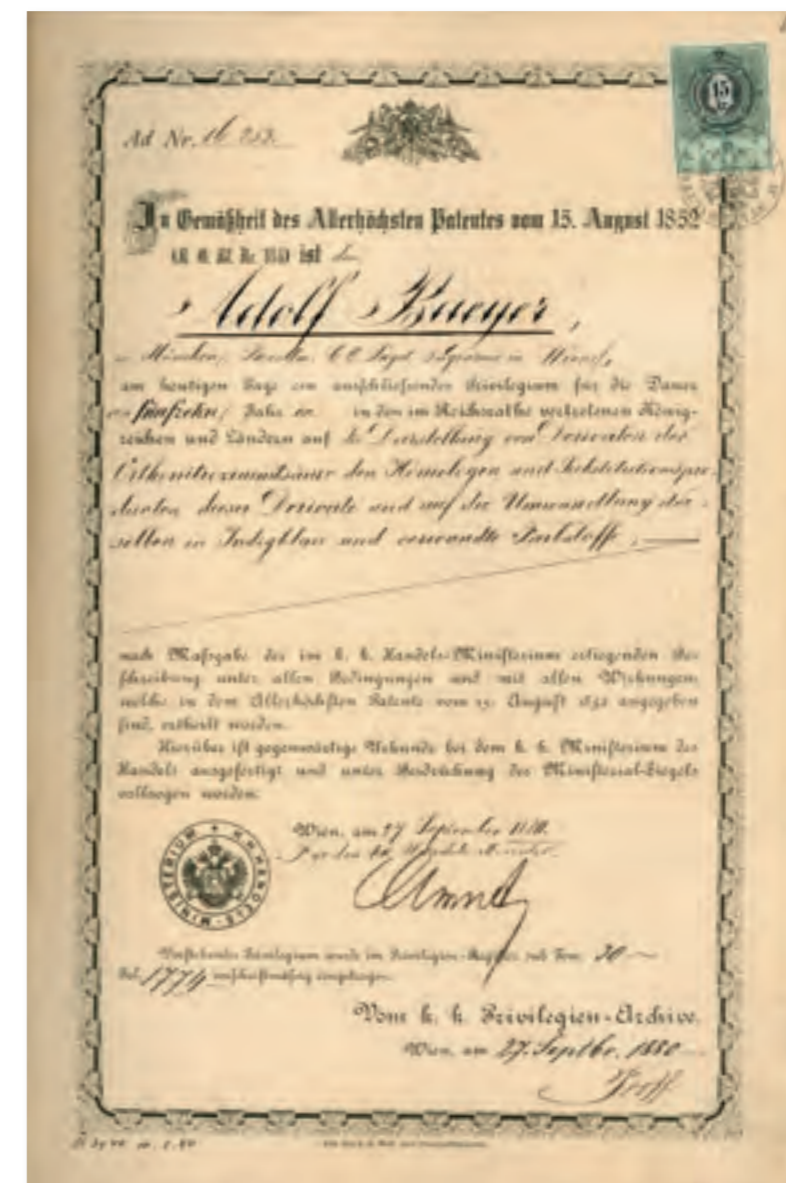 Ad Nr. 16 253.
15
In Gemäßheit des Allerhöchsten Patentes vom 15. August 1852
ist dem
Adolf Baeyer,
in München,
am heutigen Tage ein ausschließendes Privilegium für die Dauer
von fünfzehn Jahren in den im Reichsrathe vertretenen König-
reichen und Ländern auf die Darstellung von Derivaten der
Orthonitrozimmtsäure den Homologen und Substitutionspro-
ducten dieser Derivate und auf die Umwandlung der-
selben in Indigblau und verwandte Farbstoffe,
nach Maßgabe der im k. k. Handels-Ministerium erliegenden Be-
schreibung unter allen Bedingungen und mit allen Wirkungen
welche in dem Allerhöchsten Patente vom 15. August 1852 angegeben
sind, ertheilt worden.
Hierüber ist gegenwärtige Urkunde bei dem k. k. Ministerium des
Handels ausgefertigt und unter Beidrückung des Ministerial-Siegels
vollzogen worden.
K. K. HANDELS-MINISTERIUM
Wien, am 27 September 1880.
Für den k. k. Handels Minister
Vorstehendes Privilegium wurde im Privilegien-Register sub Tom. 30
Fol. 1774 vorschriftmäßig eingetragen.
Vom k. k. Privilegien-Archive.
Wien, am 27. Septbr. 1880